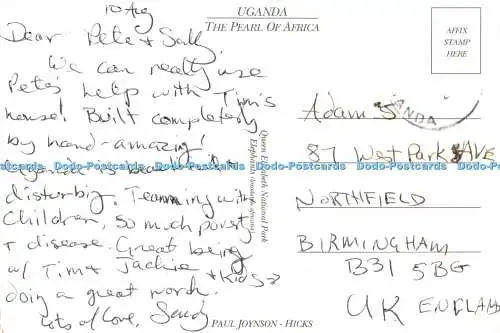 UGANDA
THE PEARL OF AFRICA
AFFIX
STAMP
HERE
10 Aug
Dear Pete & Sally,
We can really use
Pete's help with Tim's
house! Built completely
by hand - amazing!
Uganda is beautiful &
disturbing. Teaming with
Children, so much poverty
& disease. Great being
w/ Tim & Jackie & Kids
doing a great work.
Lots of Love, Sandy
Queen Elizabeth National Park
Elephants (loxodonta africana)
PAUL JOYNSON - HICKS
ANDA
Adams
87 West Park AVE
NORTHFIELD
BIRMINGHAM
B31 5BG
UK ENGLAND
Dodo-Postcards Dodo-Postcards Dodo-Postcards Dodo-Postcards Dodo-Postcards